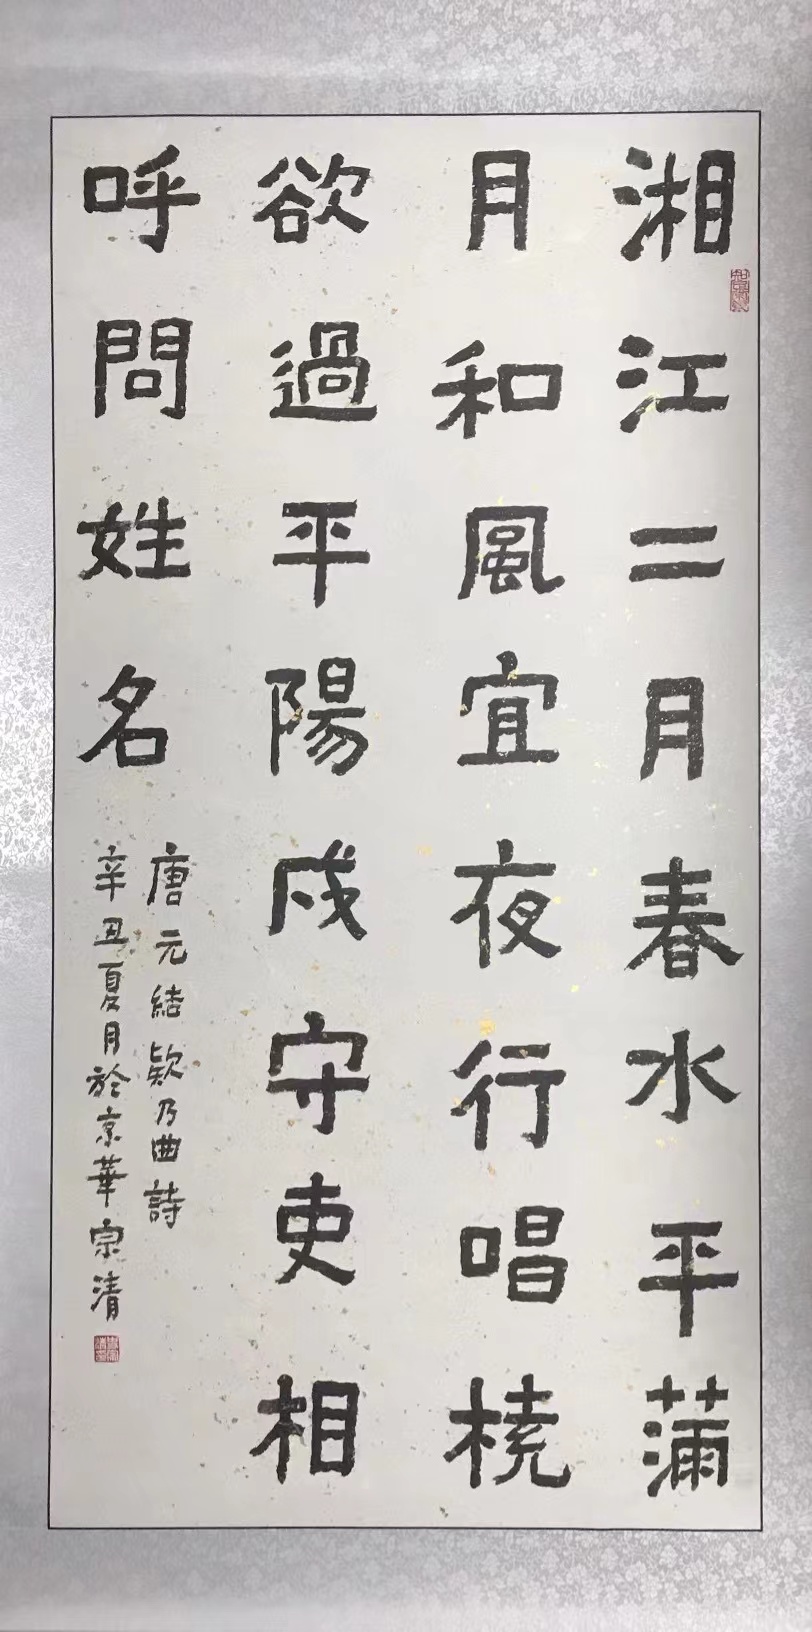 湘江二月春水平蒲
月和風宜夜行唱橈
欲過平陽戍守吏相
呼問姓名
唐元結欸乃曲詩
辛丑夏月於京華宗清